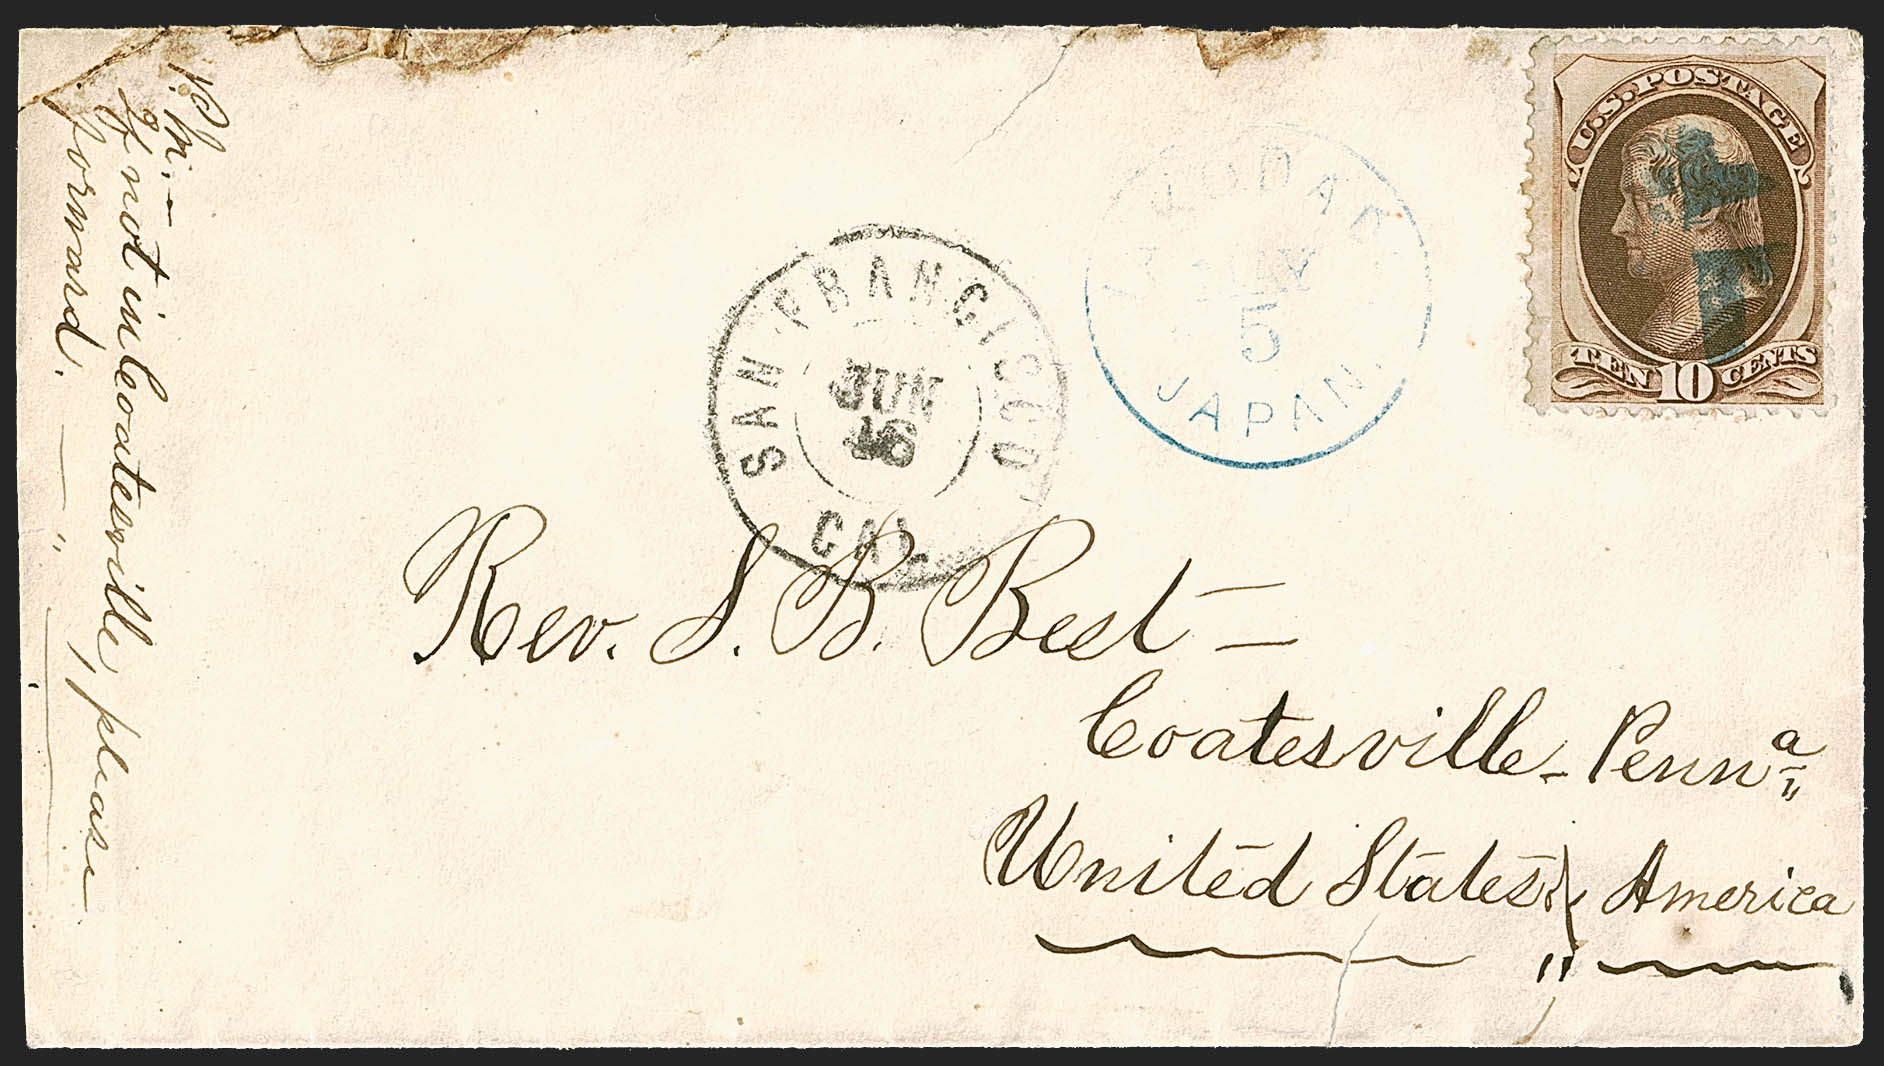 P.M. —
If not in Coatesville, please
forward. — "
SAN FRANCISCO
JUN
16
CAL.
5
JAPAN.
U.S. POSTAGE
TEN 10 CENTS
Rev. S. B. Best —
Coatesville - Penna
United States, America